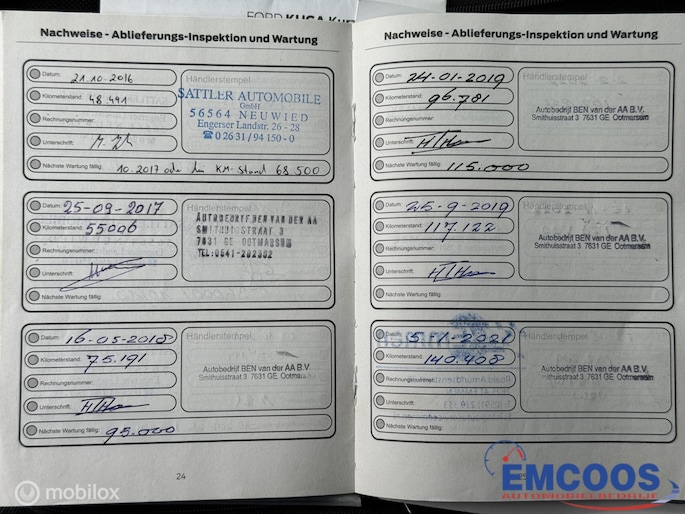 FORD KUGA
Nachweise - Ablieferungs-Inspektion und Wartung
Datum: 21.10.2016
Kilometerstand: 48.491
Rechnungsnummer:
Unterschrift:
Nächste Wartung fällig: 10.2017 oder bei KM-Stand 68.500
Händlerstempel
SATTLER AUTOMOBILE
GmbH
56564 NEUWIED
Engerser Landstr. 26 - 28
☎ 0 26 31 / 94 150 - 0
Datum: 25-09-2017
Kilometerstand: 55096
Rechnungsnummer:
Unterschrift:
Nächste Wartung fällig:
Händlerstempel
AUTOBEDRIJF BEN VAN DER AA
SMITHUIS STRAAT 3
7631 GE OOTMARSUM
TEL:0541-292302
Datum: 16-05-2018
Kilometerstand: 75.191
Rechnungsnummer:
Unterschrift:
Nächste Wartung fällig: 95.000
Händlerstempel
Autobedrijf BEN van der AA B.V.
Smithuisstraat 3 7631 GE Ootmarsum
24
Nachweise - Ablieferungs-Inspektion und Wartung
Datum: 24-01-2019
Kilometerstand: 96.781
Rechnungsnummer:
Unterschrift:
Nächste Wartung fällig: 115.000
Händlerstempel
Autobedrijf BEN van der AA B.V.
Smithuisstraat 3 7631 GE Ootmarsum
Datum: 25-9-2019
Kilometerstand: 117.122
Rechnungsnummer:
Unterschrift:
Nächste Wartung fällig:
Händlerstempel
Autobedrijf BEN van der AA B.V.
Smithuisstraat 3 7631 GE Ootmarsum
Datum: 5-1-2021
Kilometerstand: 140.408
Rechnungsnummer:
Unterschrift:
Nächste Wartung fällig:
Händlerstempel
Autobedrijf BEN van der AA B.V.
Smithuisstraat 3 7631 GE Ootmarsum
mobilox
EMCOOS
AUTOMOBIELBEDRIJF